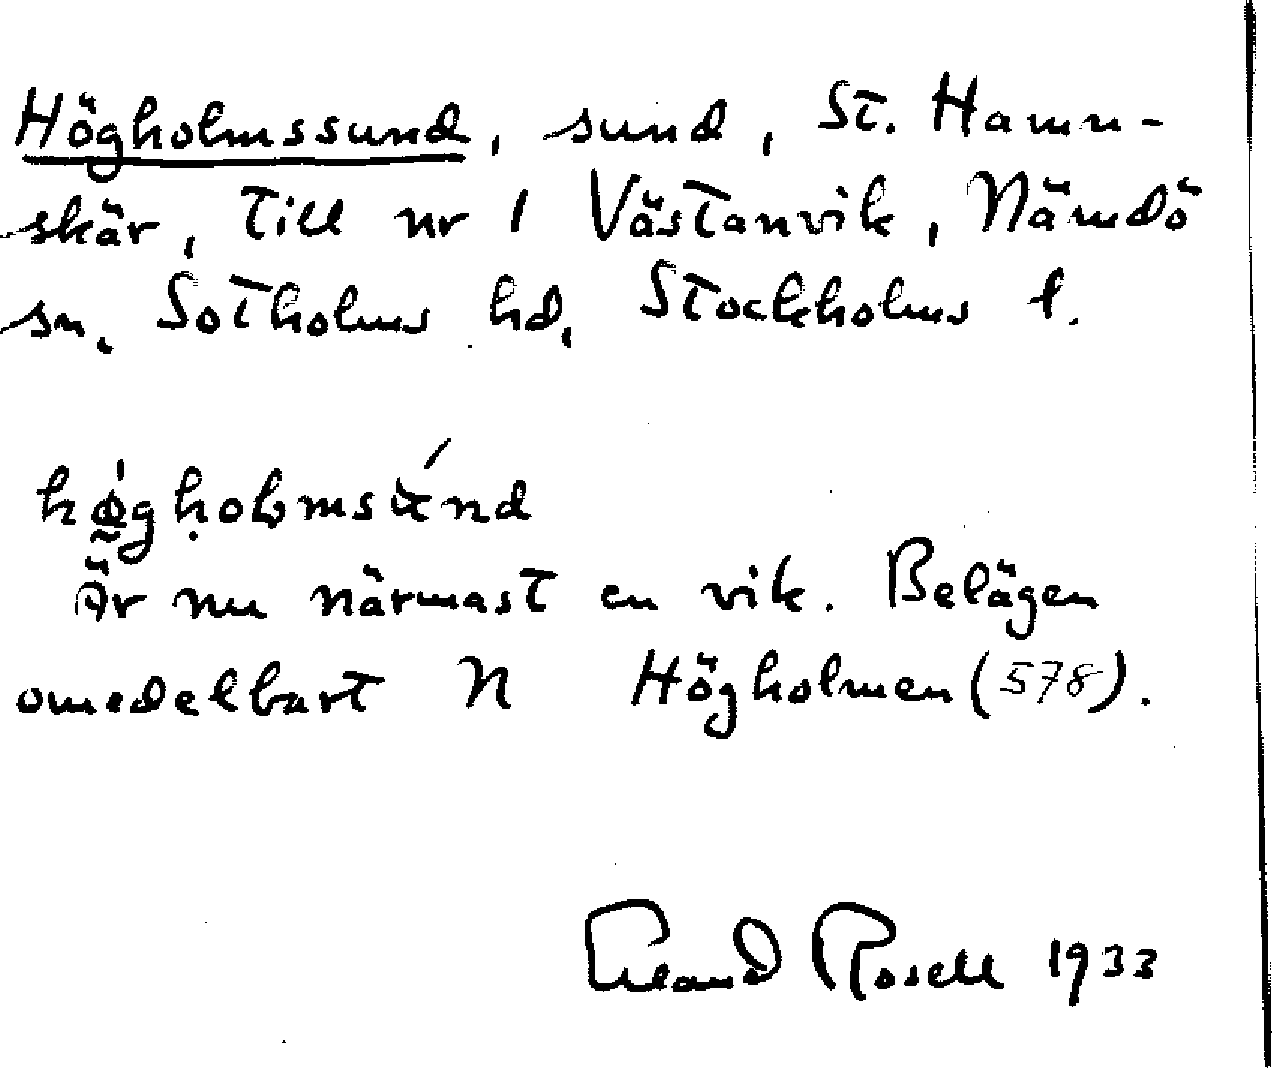 Högholmssund, sund, St. Hamn-
skär, till nr 1 Västanvik, Nämdö
sn, Sotholms hd, Stockholms l.
Är nu närmast en vik. Belägen
omedelbart N Högholmen (578).
Erland Rosell 1933